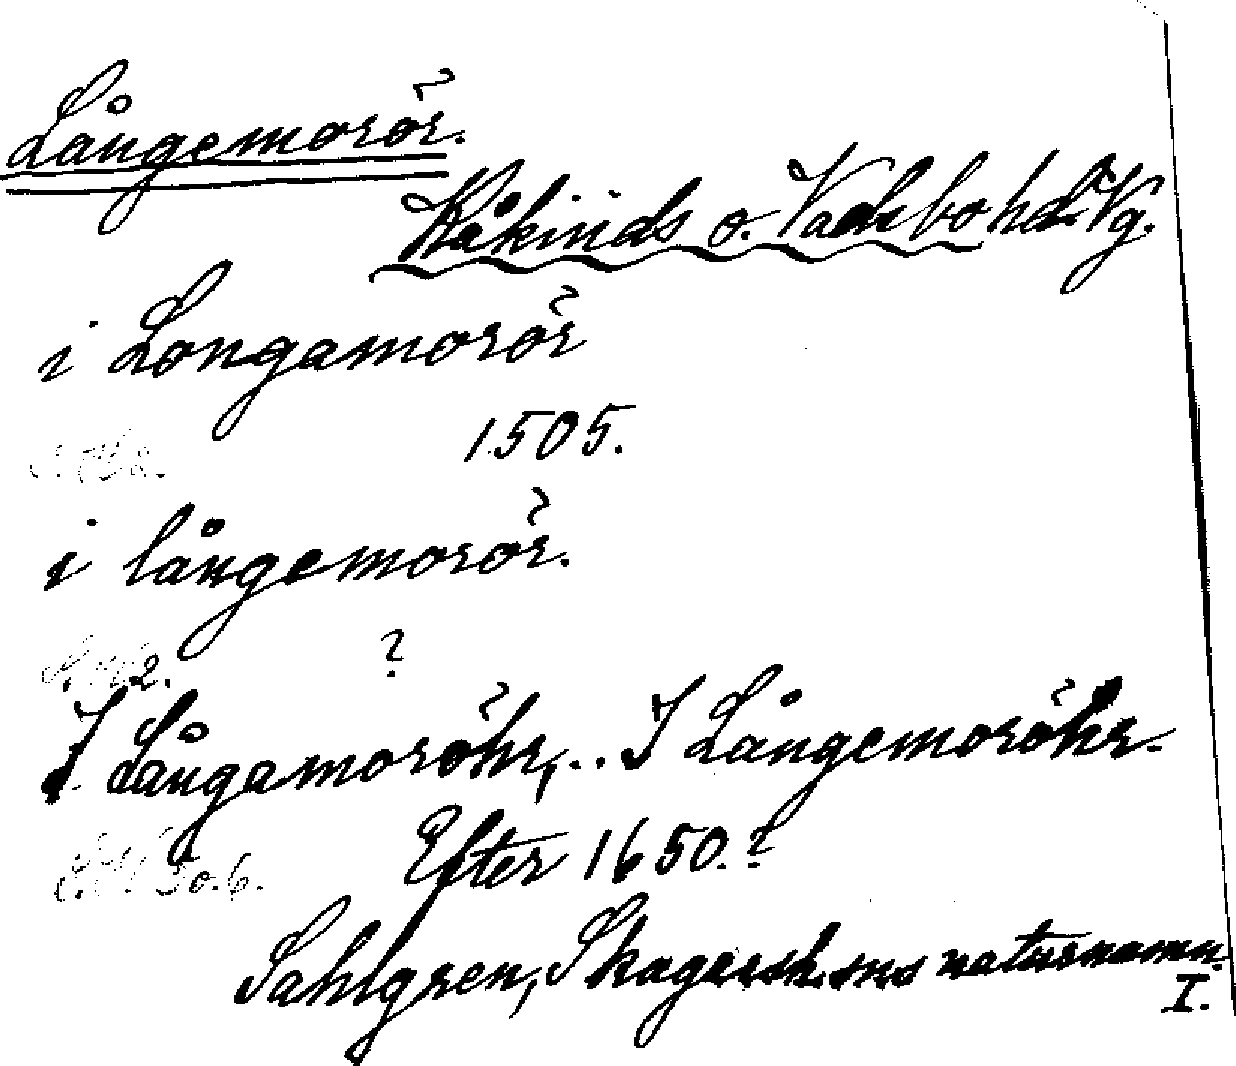 Långemorör.
Kåkinds o. Vadsbo hd. Vg.
i Longamorör
1505.
i långemorör.
?
I Långamoröhr, .. I Långemoröhr.
Efter 1650.?
Sahlgren, Skagersh. sns naturnamn
I.